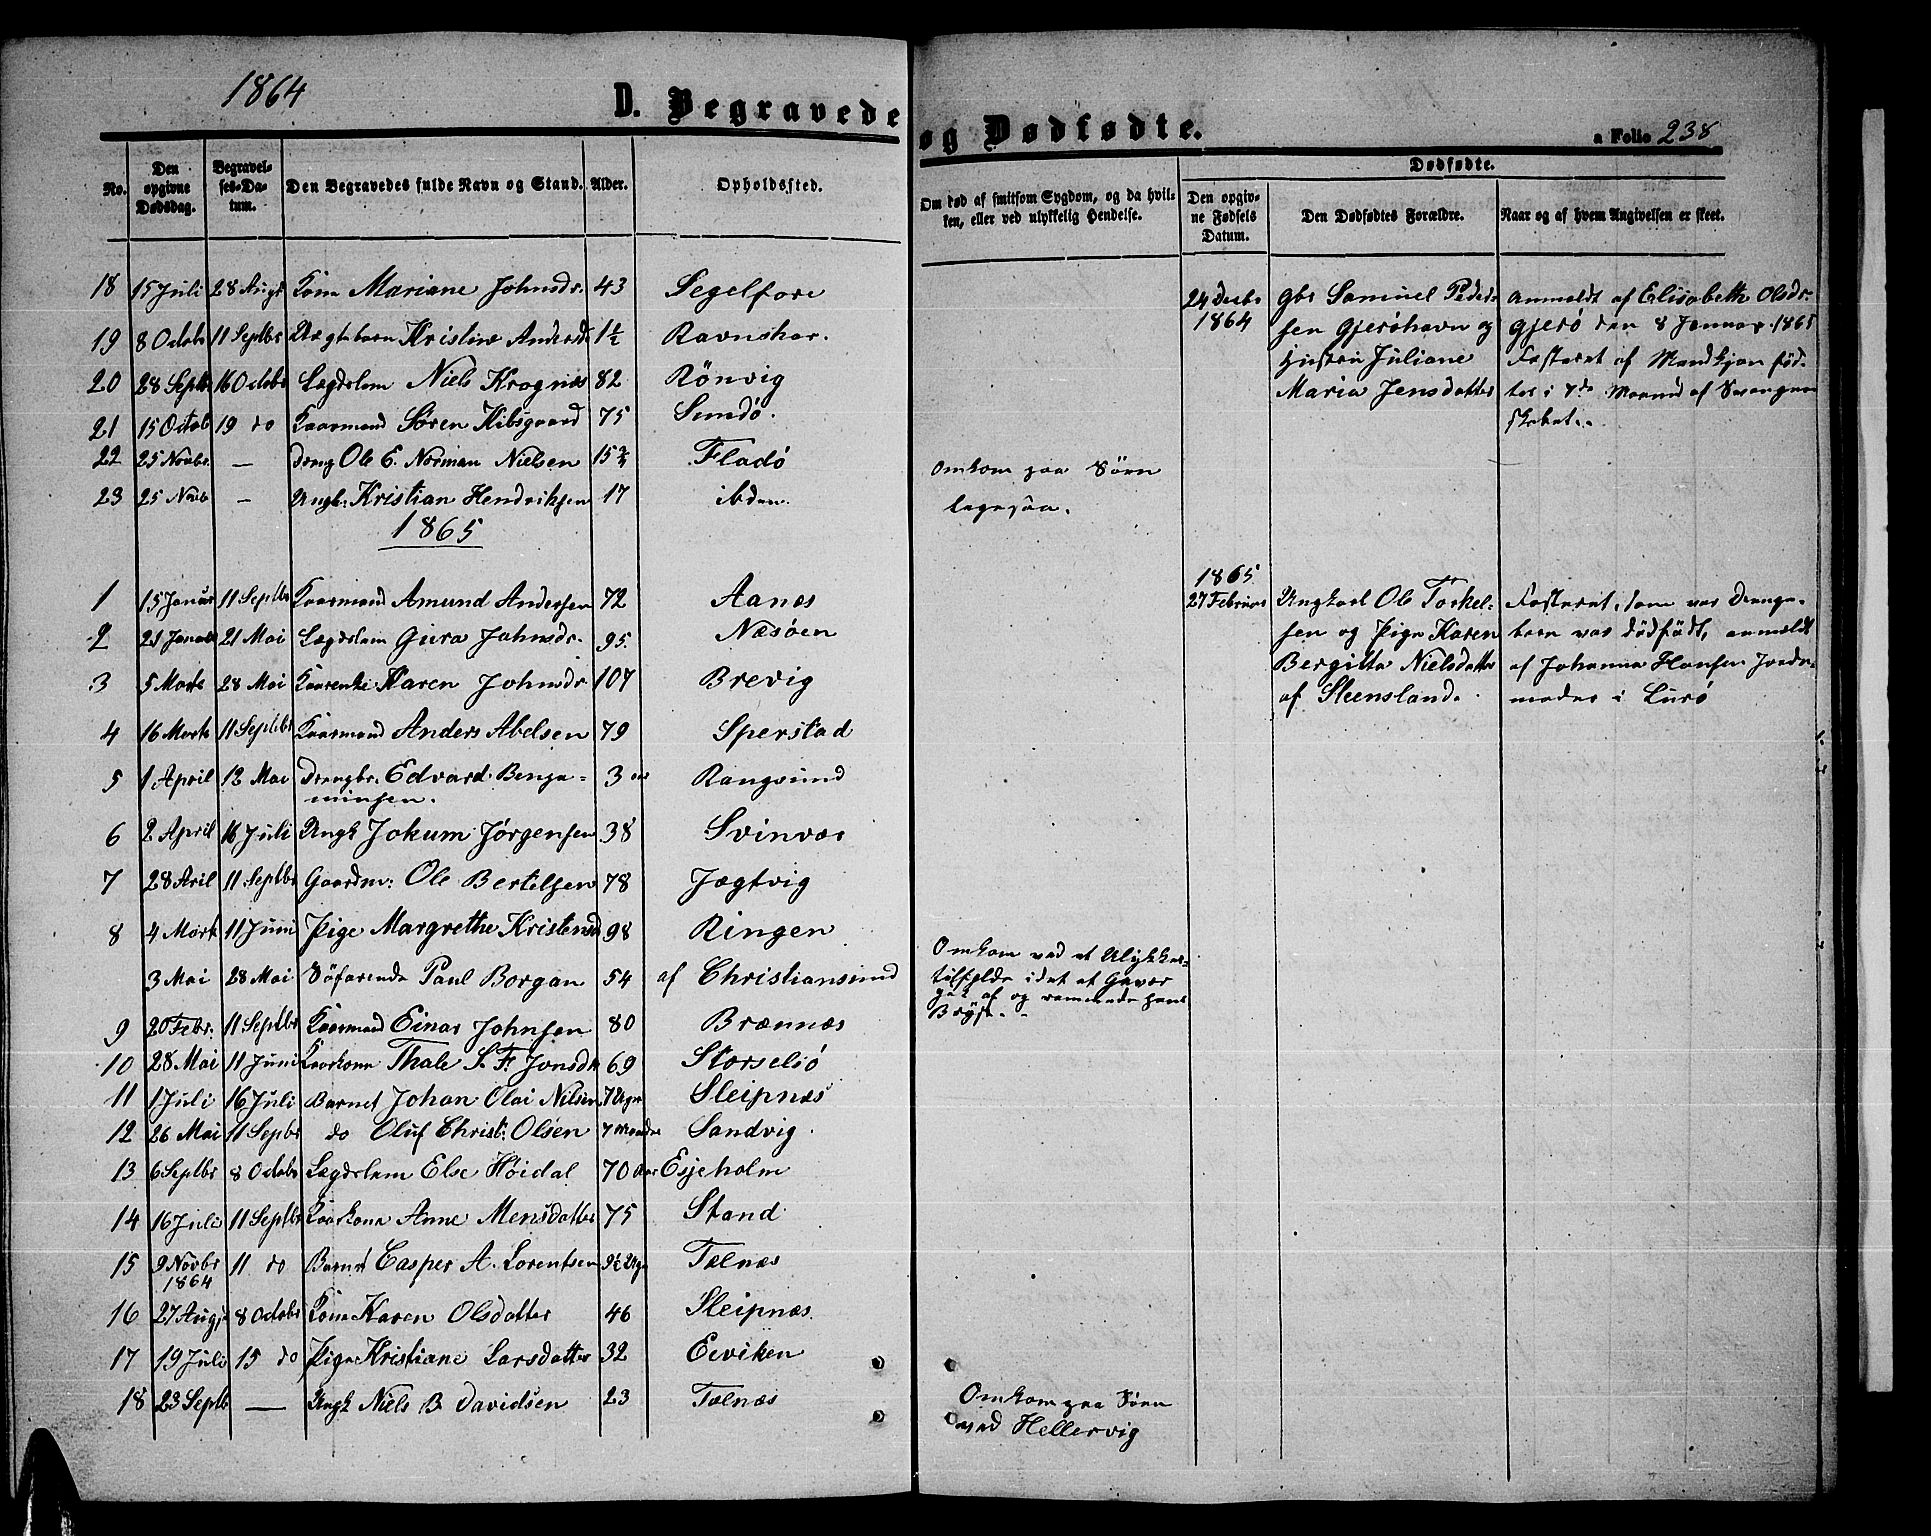 1864
D. Begravede og Dødfødte.
a Folio 238
No.
Den opgivne Dødsdag.
Begravelses-Datum.
Den Begravedes fulde Navn og Stand.
Alder.
Opholdssted.
Om død af smitsom Sygdom, og da hvilken, eller ved ulykkelig Hendelse.
Dødfødte.
Den opgivne Fødsels Datum.
Den Dødfødtes Forældre.
Naar og af hvem Angivelsen er skeet.
18 15 Juli 28 Augs Kone Mariane Johnsdr. 43 Segelfore
19 8 Octob 11 Septbr Ægtebarn Kristine Andersd 1½ Ravnskar.
20 28 Septb 16 Octobr Lægdslem Niels Krognæs 82 Rönvig
21 15 Octob 19 do Kaarmand Sören Hibsgaard 75 Sundö.
22 25 Novbr. — Dreng Ole E. Norman Nielsen 15 Fladö Omkom paa Söen
23 25 Novb — Ungk: Kristian Hendriksen 17 ibden.
24 Decbr 1864
Gbr Samuel Peders
sen Gjeröhavn og
Hustru Juliane
Maria Jensdatter
Anmeldt af Elisabeth Olsdr.
Gjerö den 8 Januar 1865
Fosteret af Mandkjön föd
tes i 7de Maaned af Svangner
skabet..
1865
1 15 Januar 11 Septbr Kaarmand Amund Andersen 72 Aanæs
2 21 Januar 21 Mai Lægdslem Gura Johnsdr. 95. Næsöen
3 5 Marts 28 Mai Kaarenke Karen Johnsdr 107 Brevig
4 16 Marts 11 Septbr Kaarmand Anders Abelsen 79 Sperstad
5 1 April 12 Mai Drengbr. Edvard Benja-
minsen. 3 Rangsund
6 2 April 16 Juli Ungk Jokum Jörgensen 38 Svinvær
7 28 Aril 11 Septbr Gaardm: Ole Bertelsen 78 Jægtvig
8 4 Mark 11 Juni Pige Margrethe Kristensd 98 Ringen
3 Mai 28 Mai Söfarende Paul Borgan 54 af Christiansund
Omkom ved et Ulykkes-
tilfælde idet et Gevær
gik af og rammede hans
Bryst. -
9 20 Febr: 11 Septbr Kaarmand Einar Johnsen 80 Brænnæs
10 28 Mai 11 Juni Kaarkone Thale S. F. Jonsdr 69 Storselsö
11 1 Juli 16 Juli Barnet Johan Olai Nilsen 7 Uger Sleipnæs
12 26 Mai 11 Septbr do Oluf Christ: Olsen 7 Maander Sandvig.
13 6 Septbr 8 Octobr Lægdslem Else Höidal 70 Aar Esjeholm
14 16 Juli 11 Septbr Kaarkone Anne Mensdatter 75 Stand
15 9 Novbr 1864 11 do Barnet Casper A. Lorentsen 9½ Uge Tælnæs
16 27 Augs 8 Octobr Kone Karen Olsdatter 46 Sleipnæs.
17 19 Juli 15 do Pige Kristiane Larsdatter 32 Eeviken
18 23 Septb — Ungk Niels B Davidsen 23 Tælnæs
Omkom paa Söen
ved Hellervig
1865
27 Februar
Ungkarl Ole Torkel-
sen og Pige Karen
Bergitta Nielsdatter
af Steensland.
Fosteret, som var Drenge-
barn var dödfödt, anmeldt
af Johanna Hansen Jorde-
moder i Lurö